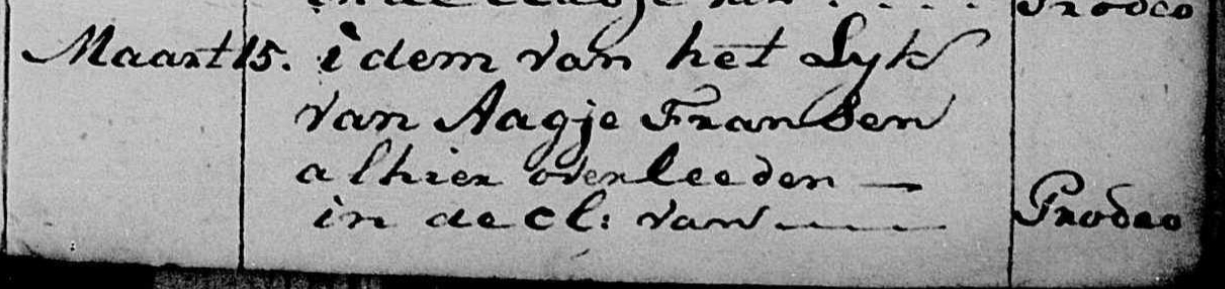 in de Classe van . . . . Prodeo
Maart 15. idem van het Lyk
van Aagje Fransen
alhier overleeden —
in de cl: van —— Prodeo